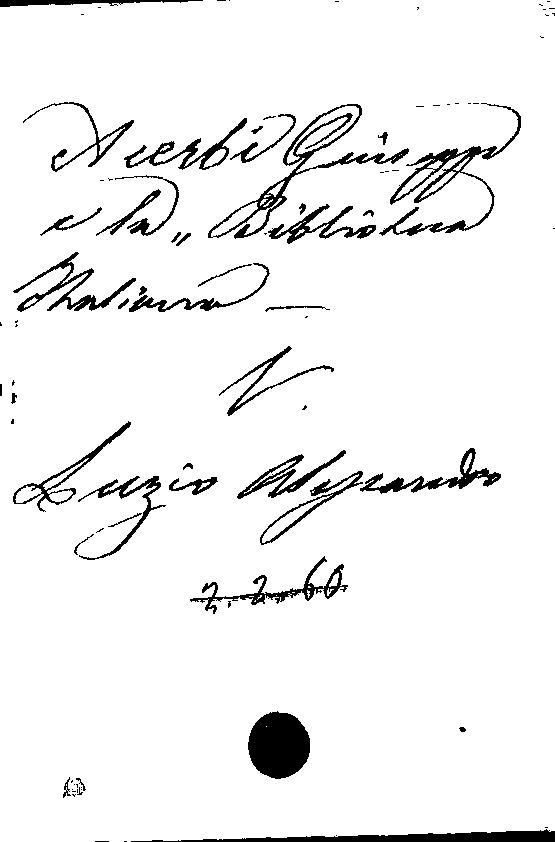 Acerbi Giuseppe
e la „ Biblioteca
Italiana —
V.
Luzio Alessandro
2. 2. 60